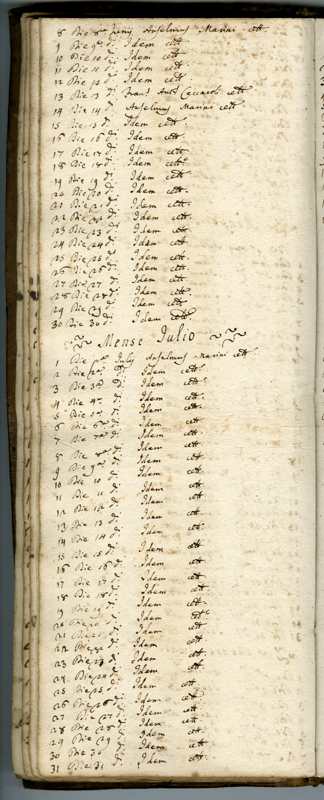 8 Die 8ª Junij Anselmus Marini cett
9 Die 9ª dj. Idem cett
10 Die 10 dj. Idem cett
11 Die 11 dj. Idem cett
12 Die 12 dj. Idem cett
13 Die 13 dj. Antº cett
14 Die 14 dj. Anselmus Marini cett
15 Die 15 dj. Idem cett
16 Die 16 dj. Idem cett
17 Die 17 dj. Idem cett
18 Die 18 dj. Idem cett
19 Die 19 dj. Idem cett
20 Die 20 dj. Idem cett
21 Die 21 dj. Idem cett
22 Die 22 dj. Idem cett
23 Die 23 dj. Idem cett
24 Die 24 dj. Idem cett
25 Die 25 dj. Idem cett
26 Die 26 dj. Idem cett
27 Die 27 dj. Idem cett
28 Die 28 dj. Idem cett
29 Die 29 dj. Idem cett
30 Die 30 dj. Idem cett
Mense Julio
1 Die pª Julij Anselmus Marini cett
2 Die dj. Idem cett
3 Die 3ª dj. Idem cett
4 Die 4ª dj. Idem cett
5 Die 5ª dj. Idem cett
6 Die 6ª dj. Idem cett
7 Die 7ª dj. Idem cett
8 Die 8ª dj. Idem cett
9 Die 9ª dj. Idem cett
10 Die 10 dj. Idem cett
11 Die 11 dj. Idem cett
12 Die 12 dj. Idem cett
13 Die 13 dj. Idem cett
14 Die 14 dj. Idem cett
15 Die 15 dj. Idem cett
16 Die 16 dj. Idem cett
17 Die 17 dj. Idem cett
18 Die 18 dj. Idem cett
19 Die 19 dj. Idem cett
20 Die 20 dj. Idem cett
21 Die 21 dj. Idem cett
22 Die 22 dj. Idem cett
23 Die 23 dj. Idem cett
24 Die 24 dj. Idem cett
25 Die 25 dj. Idem cett
26 Die 26 dj. Idem cett
27 Die 27 dj. Idem cett
28 Die 28 dj. Idem cett
29 Die 29 dj. Idem cett
30 Die 30 dj. Idem cett
31 Die 31 dj. Idem cett